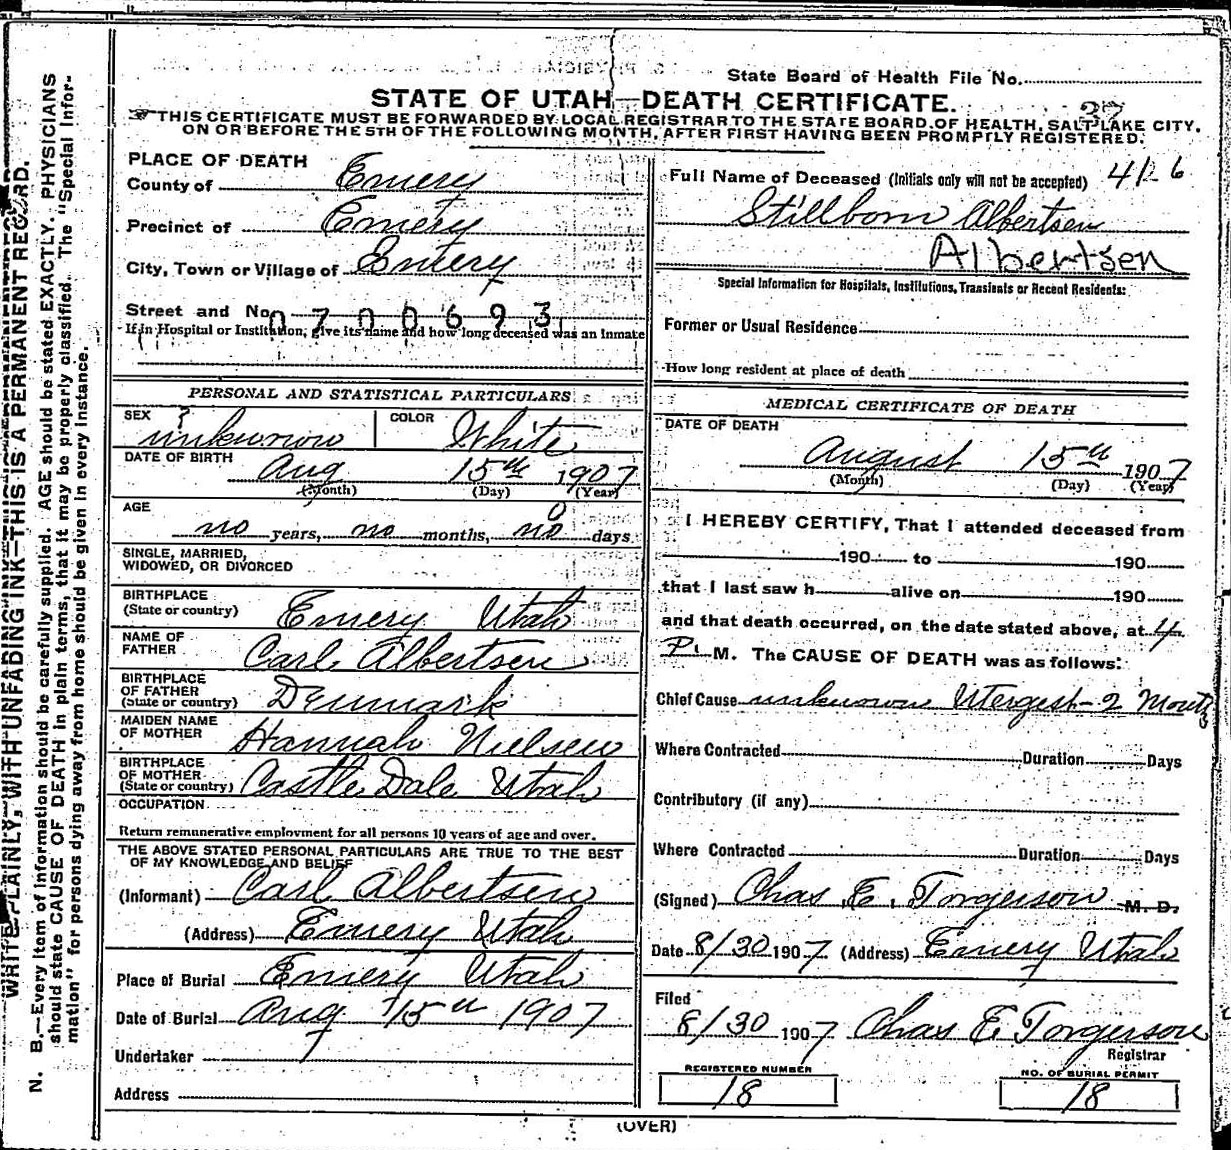 State Board of Health File No.
STATE OF UTAH—DEATH CERTIFICATE.
37
THIS CERTIFICATE MUST BE FORWARDED BY LOCAL REGISTRAR TO THE STATE BOARD OF HEALTH, SALT LAKE CITY,
ON OR BEFORE THE 5TH OF THE FOLLOWING MONTH, AFTER FIRST HAVING BEEN PROMPTLY REGISTERED.
WRITE PLAINLY, WITH UNFADING INK—THIS IS A PERMANENT RECORD.
N. B.—Every item of information should be carefully supplied. AGE should be stated EXACTLY. PHYSICIANS
should state CAUSE OF DEATH in plain terms, that it may be properly classified. The "Special Infor-
mation" for persons dying away from home should be given in every instance.
PLACE OF DEATH
County of Emery
Precinct of Emery
City, Town or Village of Emery
Street and No. 0700693
If in Hospital or Institution, give its name and how long deceased was an inmate
PERSONAL AND STATISTICAL PARTICULARS
SEX ? unknown COLOR White
DATE OF BIRTH Aug 15th 1907
(Month) (Day) (Year)
AGE 0
no years, no months, no days
SINGLE, MARRIED,
WIDOWED, OR DIVORCED
BIRTHPLACE
(State or country) Emery Utah
NAME OF
FATHER Carl Albertsen
BIRTHPLACE
OF FATHER
(State or country) Denmark
MAIDEN NAME
OF MOTHER Hannah Nielsen
BIRTHPLACE
OF MOTHER
(State or country) Castle Dale Utah
OCCUPATION
Return remunerative employment for all persons 10 years of age and over.
THE ABOVE STATED PERSONAL PARTICULARS ARE TRUE TO THE BEST
OF MY KNOWLEDGE AND BELIEF
(Informant) Carl Albertsen
(Address) Emery Utah
Place of Burial Emery Utah
Date of Burial Aug 15th 1907
Undertaker
Address
Full Name of Deceased (Initials only will not be accepted) 4126
Stillborn Albertsen
Albertsen
Special Information for Hospitals, Institutions, Transients or Recent Residents:
Former or Usual Residence
How long resident at place of death
MEDICAL CERTIFICATE OF DEATH
DATE OF DEATH
August 15th 1907
(Month) (Day) (Year)
I HEREBY CERTIFY, That I attended deceased from
190 to 190
that I last saw h alive on 190
and that death occurred, on the date stated above, at 4
P. M. The CAUSE OF DEATH was as follows:
Chief Cause unknown Utergest-2 Months
Where Contracted Duration Days
Contributory (if any)
Where Contracted Duration Days
(Signed) Chas E. Torgerson M. D.
Date 8/30 1907 (Address) Emery Utah
Filed
8/30 1907 Chas E Torgerson
Registrar
REGISTERED NUMBER NO. OF BURIAL PERMIT
18 18
(OVER)